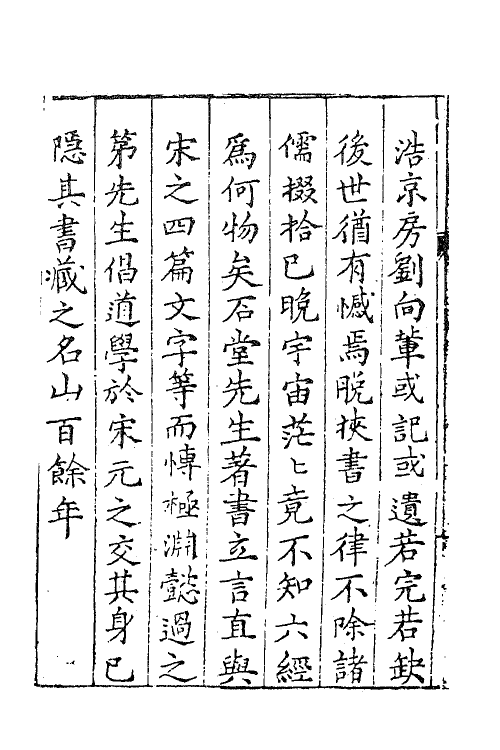 浩京房劉向輩或記或遺若完若缺
後世猶有憾焉脫挾書之律不除諸
儒掇拾已晚宇宙茫〻竟不知六經
爲何物矣石堂先生著書立言直與
宋之四篇文字等而慱極淵懿過之
苐先生倡道學於宋元之交其身已
隠其書藏之名山百餘年